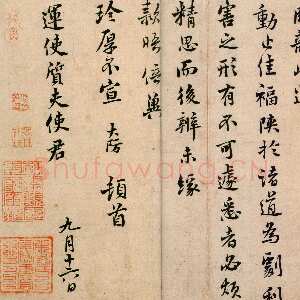 動止佳福陝於諸道為劇利
害之形有不可遽悉者必煩
精思而後辨未緣
款晤倍冀
珍厚不宣 大防 頓首
運使質夫使君
九月十六日